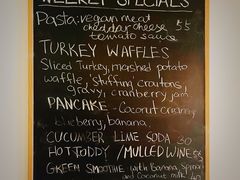 WEEKLY SPECIALS
Pasta: vegan meat
cheddar cheese 55
tomato sauce
TURKEY WAFFLES
Sliced Turkey, mashed potato
waffle, stuffing croutons,
gravy, cranberry jam
PANCAKE - Coconut
blueberry, banana
CUCUMBER LIME SODA 30
HOT TODDY / MULLED WINE
GREEN SMOOTHIE with Banana, Spinach
and Coconut milk